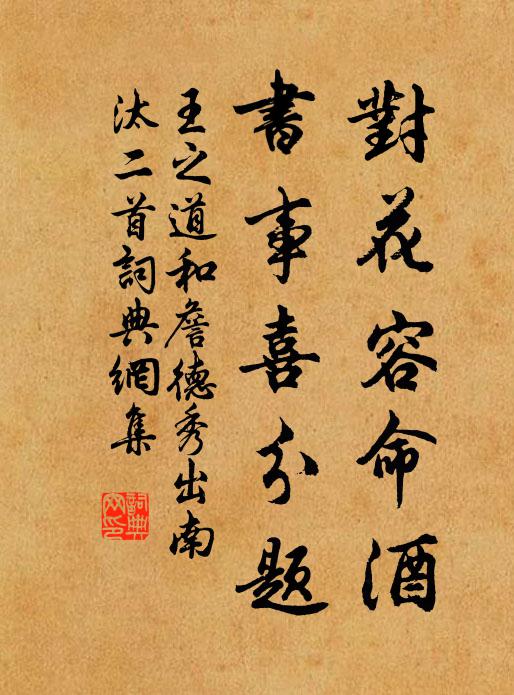 對花容命酒
書事喜分題
王之道和詹德秀出南
汰二首詞典網集
詞典網印